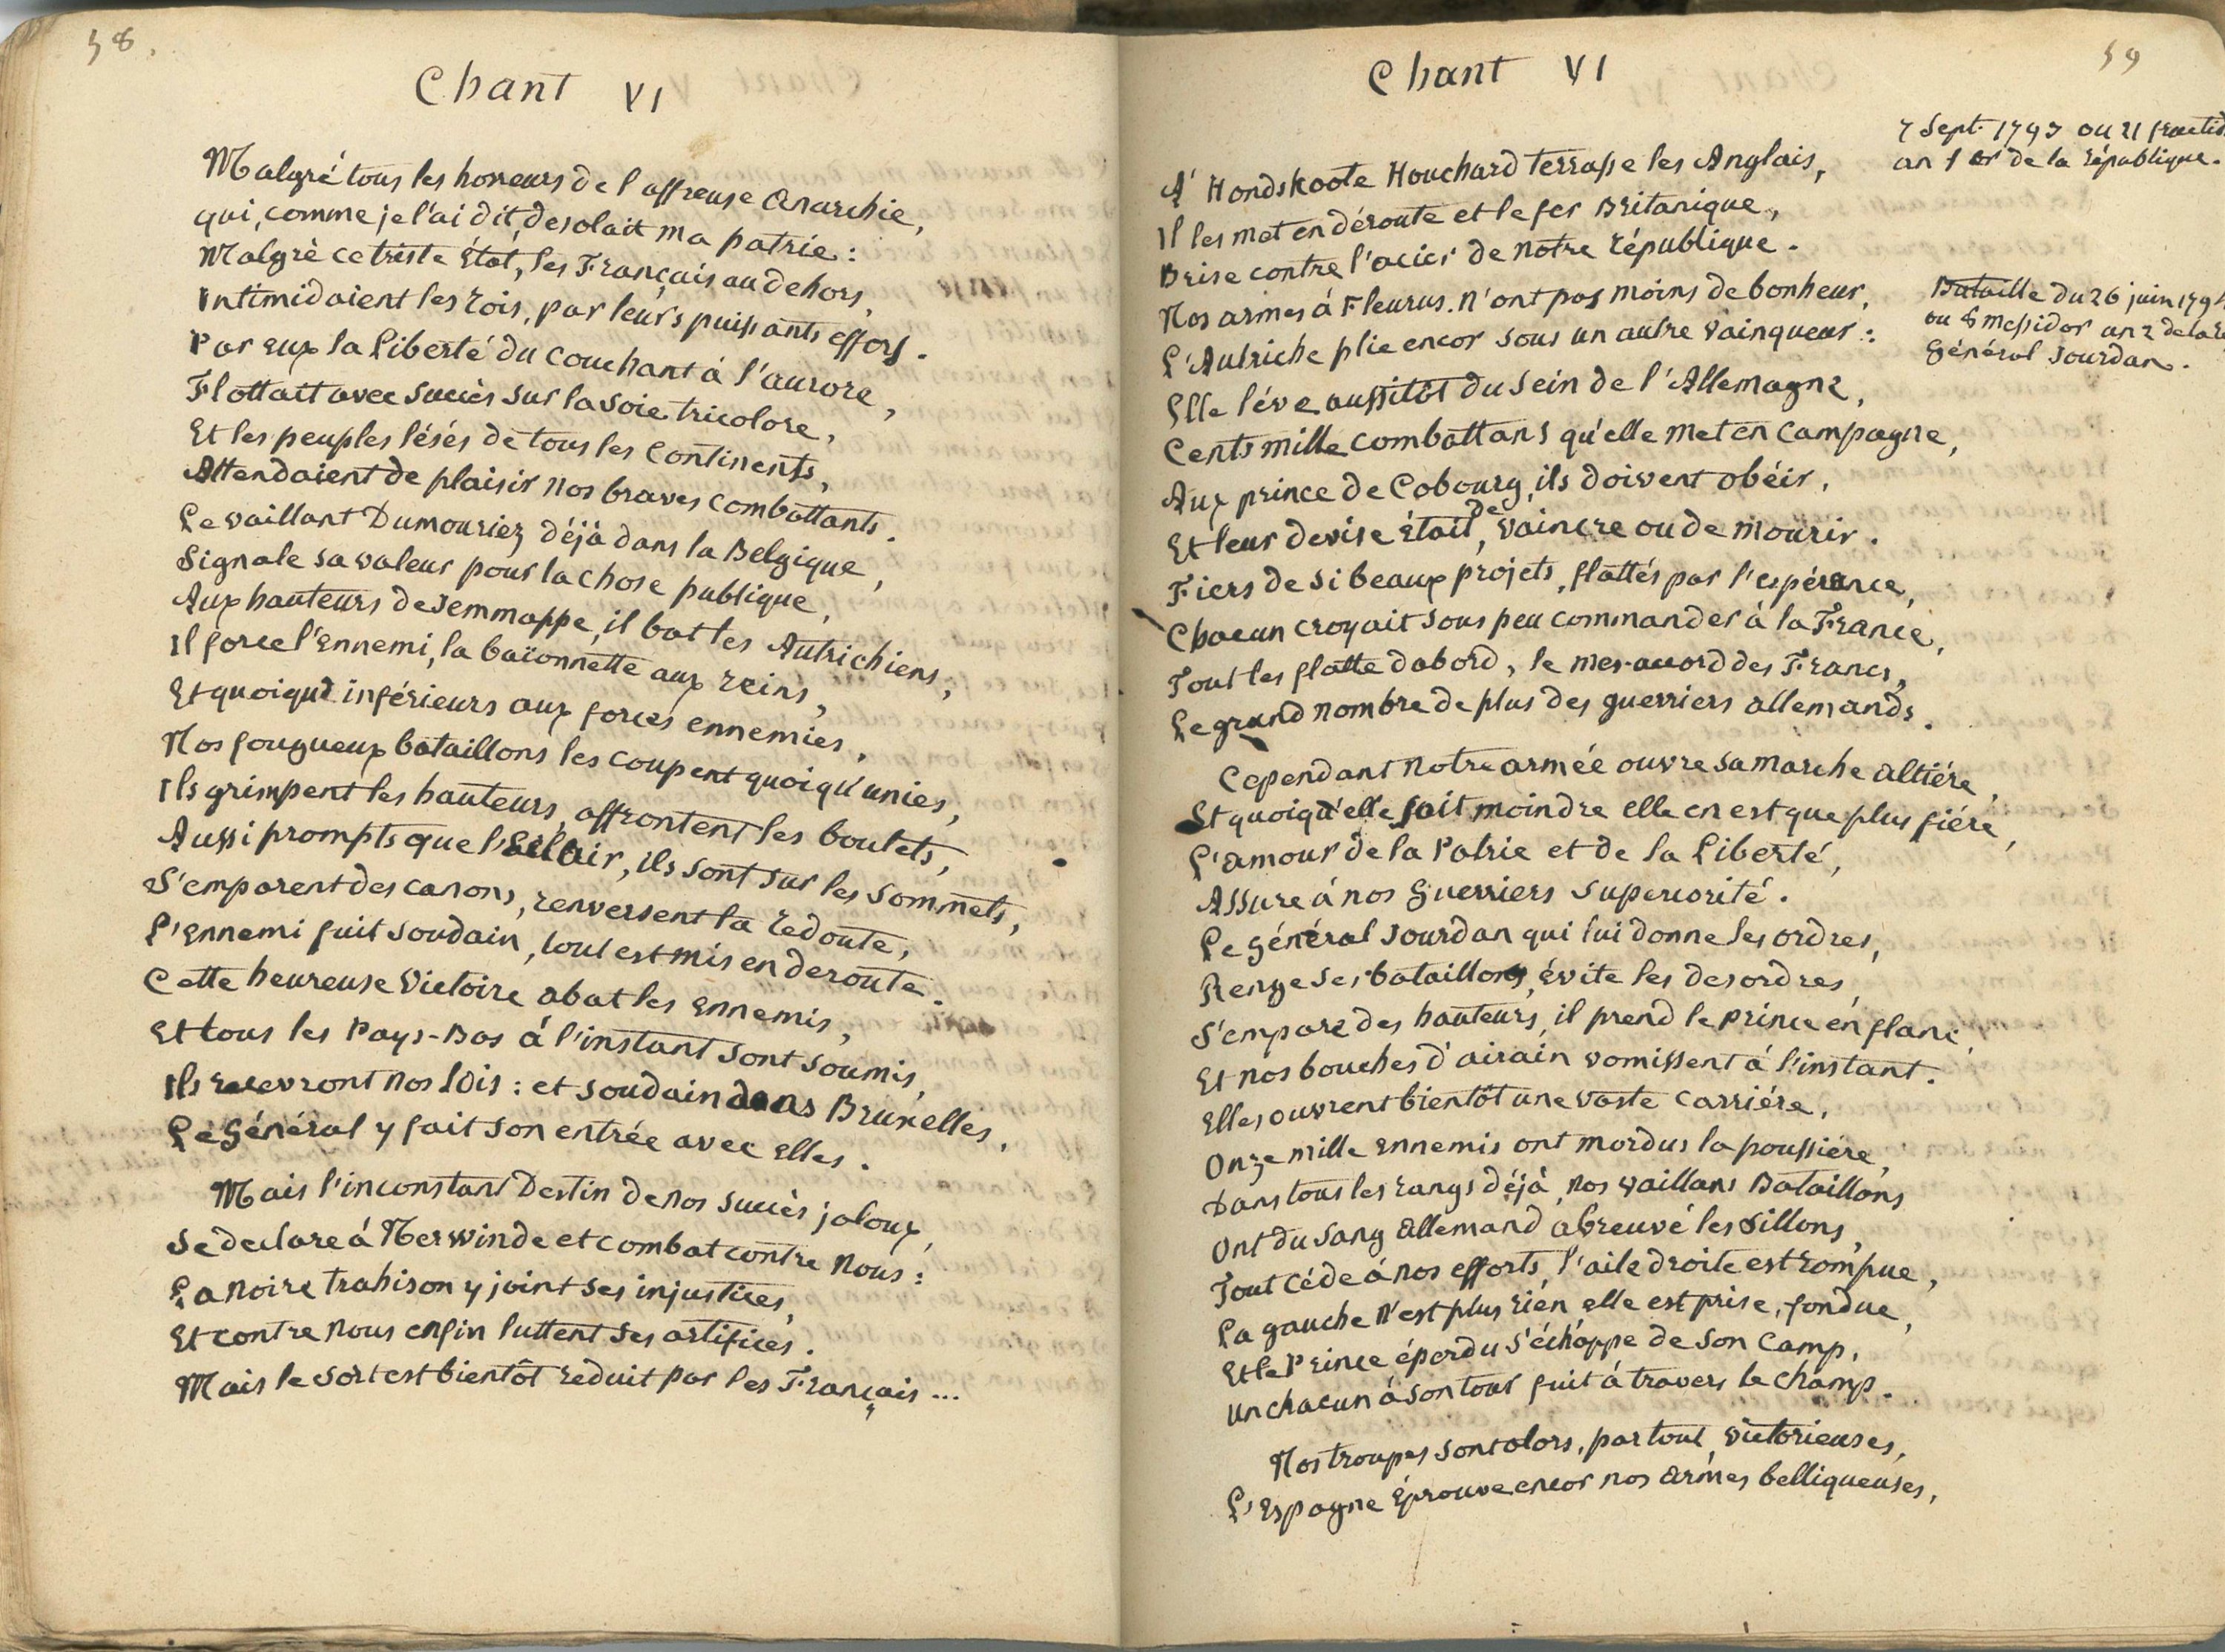 58.
Chant VI
Malgré tous les horreurs de l'affreuse Anarchie,
qui, comme je l'ai dit, desolait ma patrie:
Malgrè ce triste État, les Français au dehors,
Intimidaient les rois, par leurs puissants effors.
Par eux la Liberté du couchant à l'aurore,
Flottait avec succès sur la soie tricolore,
Et les peuples lésés de tous les Continents,
Attendaient de plaisir nos braves combattants.
Le vaillant Dumouriez déjà dans la Belgique,
Signale sa valeur pour la chose publique,
Aux hauteurs de Jemmappe, il bat les Autrichiens,
Il force l'Ennemi, la baïonnette aux reins,
Et quoique inférieurs aux forces ennemies,
Nos fougueux bataillons les coupent quoiqu'unies,
Ils grimpent les hauteurs, affrontent les boulets,
Aussi prompts que l'Eclair, ils sont sur les sommets,
S'emparent des canons, renversent la redoute,
L'ennemi fuit soudain, tout est mis en deroute.
Cette heureuse Victoire abat les Ennemis,
Et tous les Pays-Bas à l'instant sont soumis,
Ils recevront nos lois: et soudain dans Bruxelles,
Le Général y fait son entrée avec elles.
Mais l'inconstant Destin de nos succès jaloux,
Se declare à Nerwinde et combat contre nous:
La noire trahison y joint ses injustices,
Et contre nous enfin luttent ses artifices.
Mais le sort est bientôt reduit par les Français...
59
Chant VI
7 Sept. 1793 ou 21 fructid
an 1er de la république.
A' Hondskoote Houchard terrasse les Anglais,
Il les met en déroute et le fer Britanique,
Brise contre l'acier de notre république.
Nos armes à Fleurus. N'ont pas moins de bonheur,
L'Autriche plie encor sous un autre vainqueur:
Bataille du 26 juin 1794
ou 8 Messidor an 2 de la
Général Jourdan.
Elle léve aussitôt du sein de l'Allemagne,
Cents mille combattans qu'elle met en campagne,
Aux prince de Cobourg, ils doivent obéir,
Et leur devise était, de vaincre ou de mourir.
Fiers de si beaux projets, flattés par l'espérance,
Chacun croyait sous peu commander à la France,
Tout les flatte d'abord, le mes-accord des Francs,
Le grand nombre de plus des guerriers allemands.
Cependant notre armée ouvre sa marche altiére,
Et quoiqu'elle soit moindre elle en est que plus fiére,
L'amour de la Patrie et de la Liberté,
Assure à nos Guerriers superiorité.
Le Général Jourdan qui lui donne les ordres,
Renge ses bataillons, évite les desordres,
S'empare des hauteurs, il prend le prince en flanc,
Et nos bouches d'airain vomissent à l'instant.
Elles ouvrent bientôt une vaste carriére,
Onze mille ennemis ont mordus la poussiére,
Dans tous les rangs déjà, nos vaillans Bataillons
Ont du sang allemand abreuvé les sillons,
Tout céde à nos efforts, l'aile droite est rompue,
La gauche n'est plus rien, elle est prise, fondue,
Et le Prince éperdu s'échappe de son camp,
Un chacun à son tour fuit à travers le champ.
Nos troupes sont alors, partout, victorieuses,
L'Espagne éprouve encor nos armes belliqueuses,